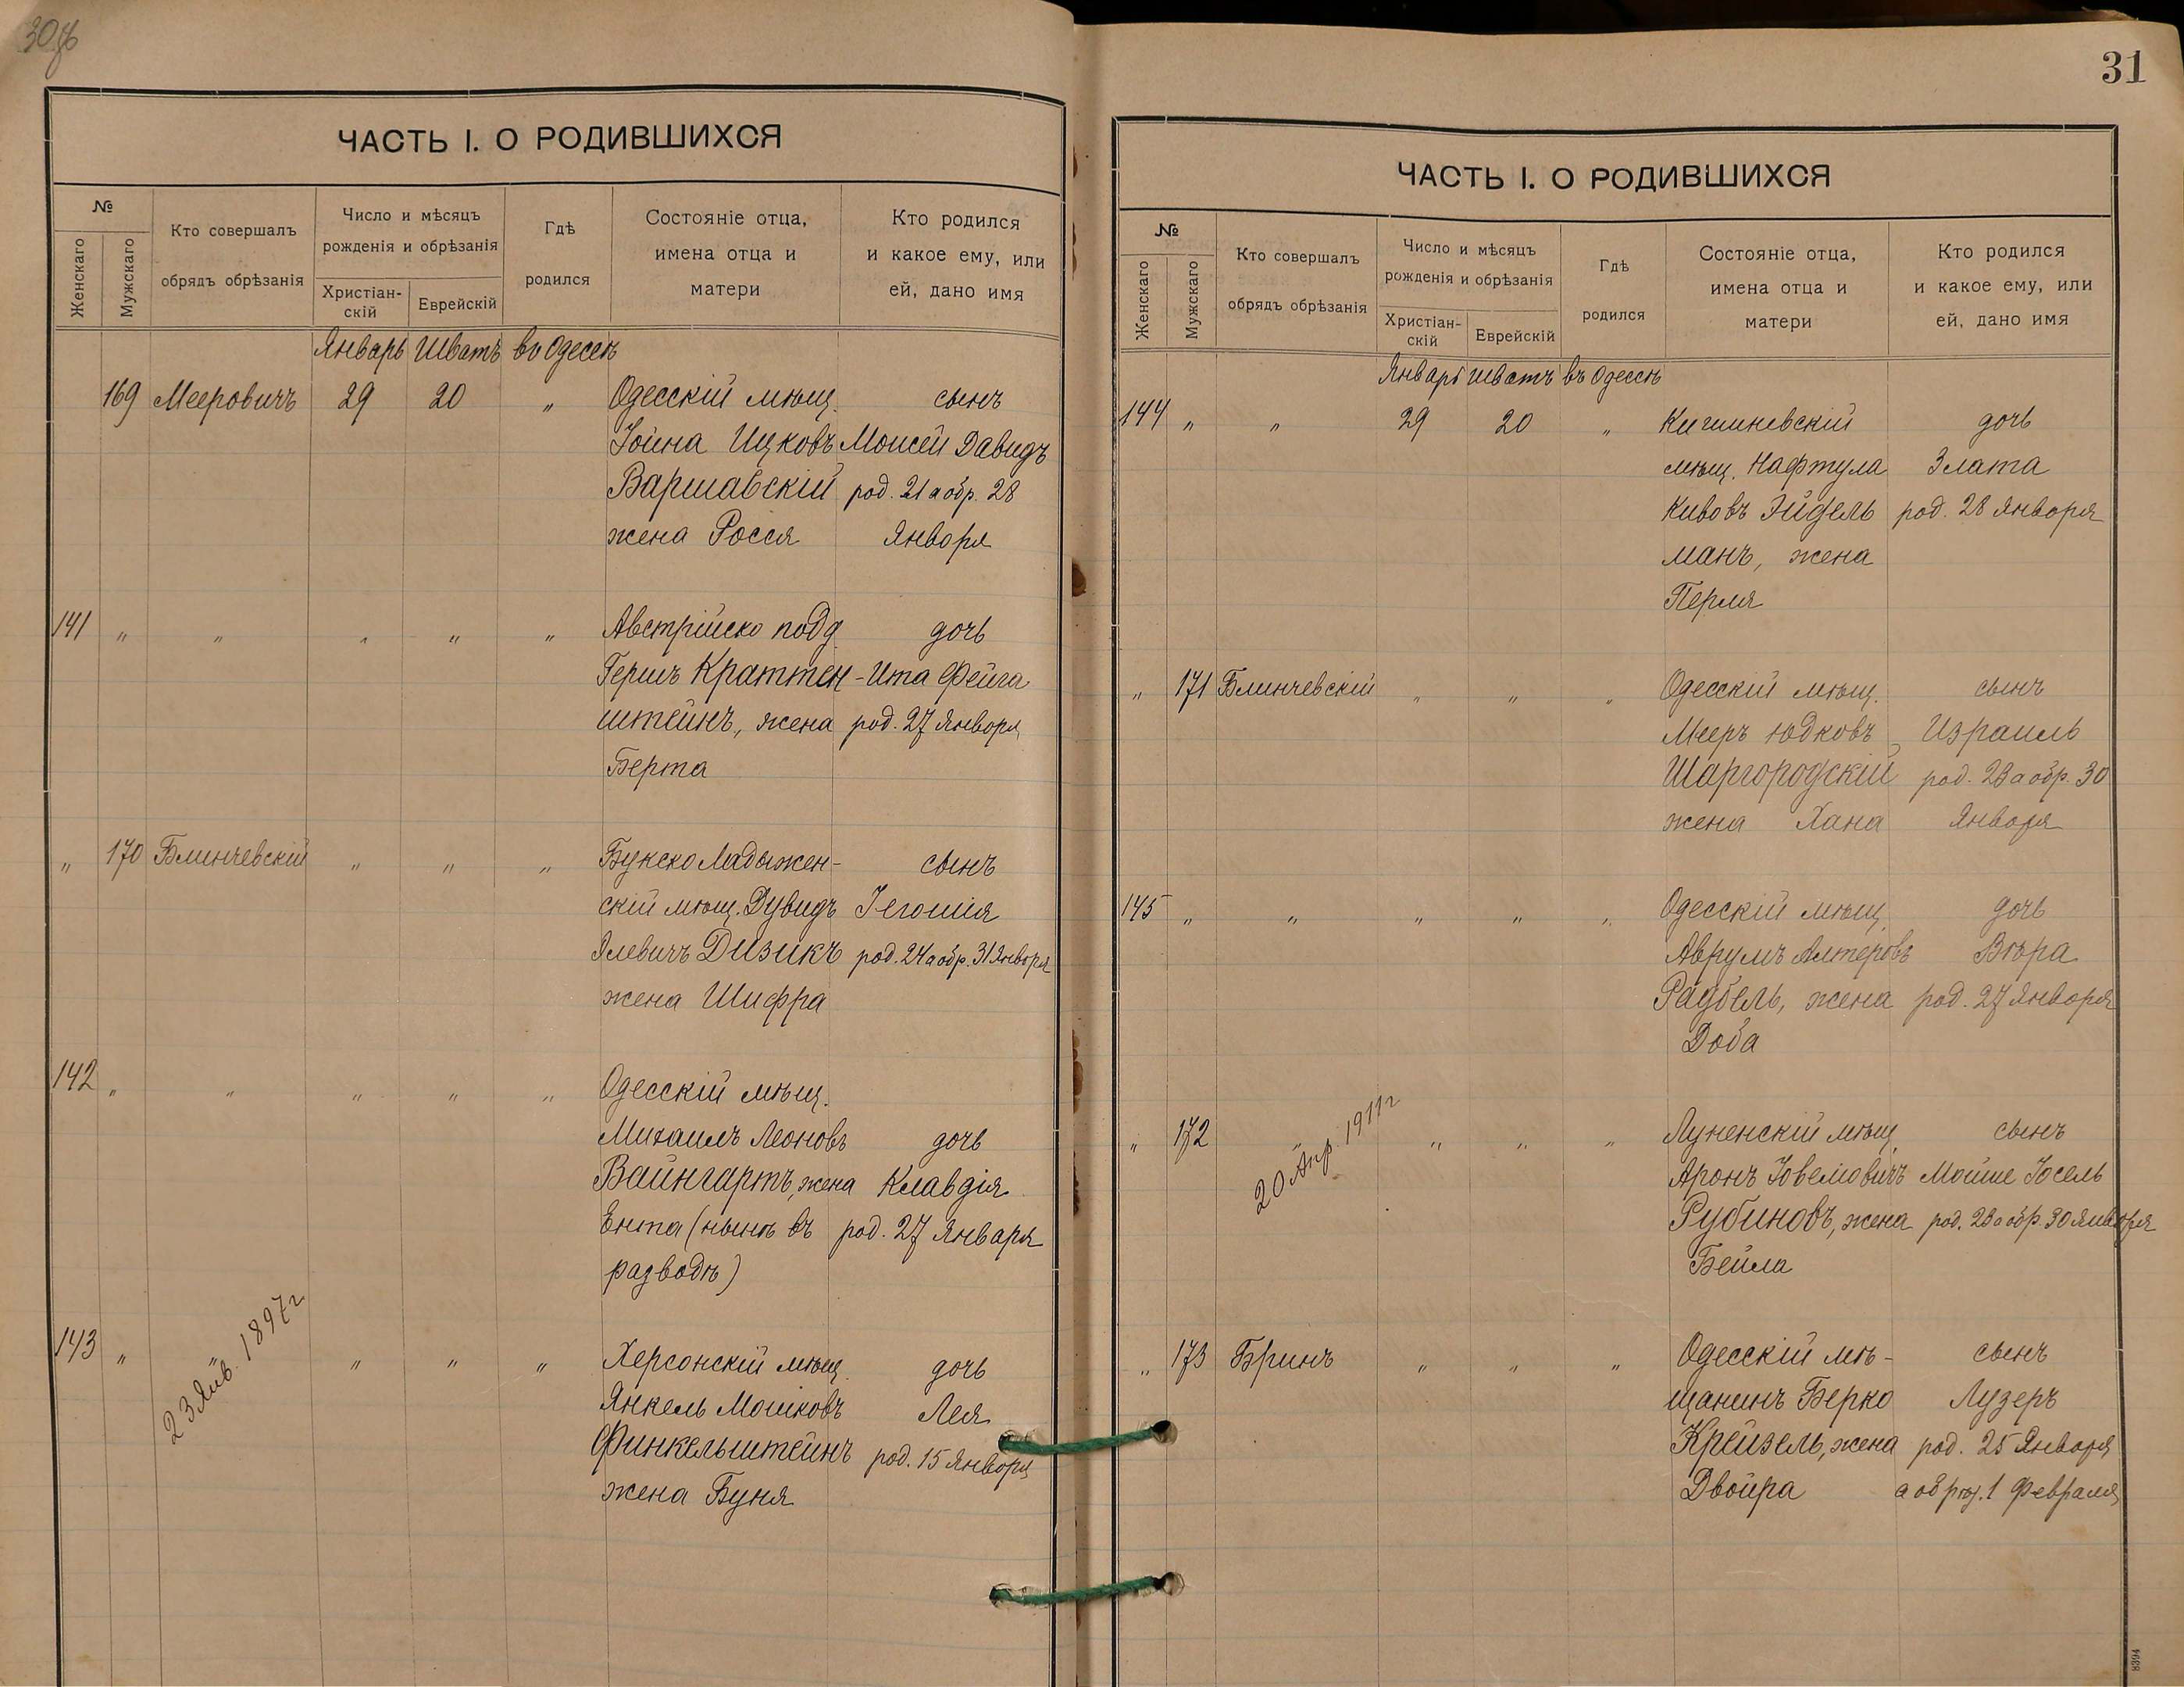 30об
ЧАСТЬ I. О РОДИВШИХСЯ
№
Женскаго
Мужскаго
Кто совершалъ
обрядъ обрѣзанія
Число и мѣсяцъ
рожденія и обрѣзанія
Христіан-
скій
Еврейскій
Гдѣ
родился
Состояніе отца,
имена отца и
матери
Кто родился
и какое ему, или
ей, дано имя
Январь Шватъ въ Одессѣ
169 Мееровичъ 29 20 " Одесскій мѣщ. сынъ
Іойна Ицковъ Моисей Давидъ
Варшавскій род. 21 а обр. 28
жена Росся Января
141 " " " " " Австрійско подд дочь
Гершъ Краттен- Ита Фейга
штейнъ, жена род. 27 Января
Берта
" 170 Блинчевскій " " " Букско Ладыжен- сынъ
скій мѣщ. Дувидъ Іегошія
Элевичъ Дизикъ род. 24 а обр. 31 Января
жена Шифра
142 " " " " " Одесскій мѣщ.
Михаилъ Леоновъ дочь
Вайнгартъ, жена Клавдія
Ента (нынѣ въ род. 27 Января
разводѣ)
143 " " " " " Херсонскій мѣщ. дочь
23 Янв. 1897 г
Янкель Мошковъ Лея
Финкельштейнъ род. 15 Января
жена Буня
31
ЧАСТЬ I. О РОДИВШИХСЯ
№
Женскаго
Мужскаго
Кто совершалъ
обрядъ обрѣзанія
Число и мѣсяцъ
рожденія и обрѣзанія
Христіан-
скій
Еврейскій
Гдѣ
родился
Состояніе отца,
имена отца и
матери
Кто родился
и какое ему, или
ей, дано имя
Январь Шватъ въ Одессѣ
144 " " 29 20 " Кишиневскій дочь
мѣщ. Нафтула Злата
Кивовъ Эйдель род. 28 Января
манъ, жена
Перля
" 171 Блинчевскій " " " Одесскій мѣщ. сынъ
Мееръ Юдковъ Израиль
Шаргородскій род. 23 а обр. 30
жена Хана Января
145 " " " " " Одесскій мѣщ. дочь
Аврумъ Алтеровъ Вѣра
Раубель, жена род. 27 Января
Доба
" 172 " " " " мѣщ. сынъ
20 Апр. 1911 г
Аронъ Мойше Іосель
Рубиновъ, жена род. 23 а обр. 30 Января
Бейла
" 173 Бринъ " " " Одесскій мѣ- сынъ
щанинъ Берко Лузеръ
Крейзель, жена род. 25 Января
Двойра а обрѣз. 1 Февраля
8394